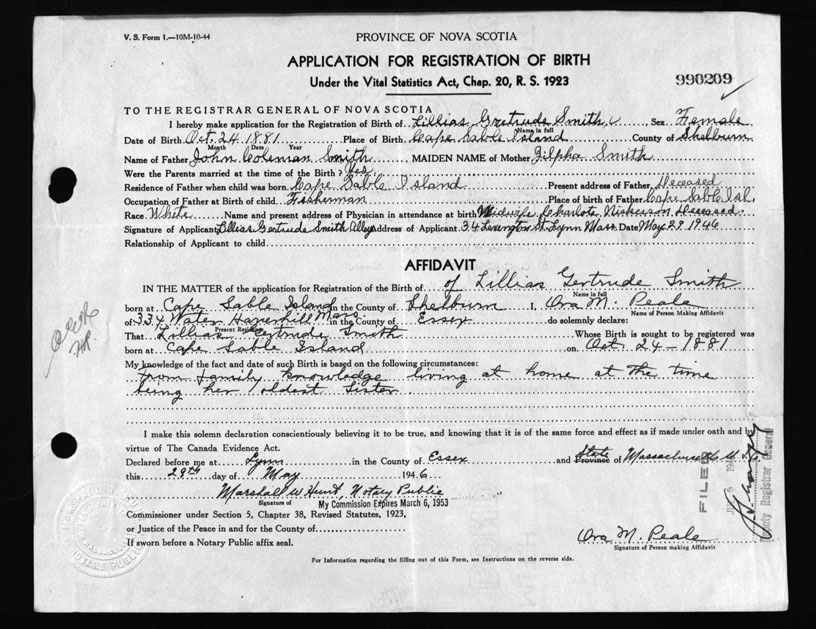 V. S. Form 1.—10M-10-44
PROVINCE OF NOVA SCOTIA
APPLICATION FOR REGISTRATION OF BIRTH
Under the Vital Statistics Act, Chap. 20, R. S. 1923
990209
TO THE REGISTRAR GENERAL OF NOVA SCOTIA
I hereby make application for the Registration of Birth of Lillias Gertrude Smith Sex Female
Name in full
Date of Birth Oct. 24 1881 Place of Birth Cape Sable Island County of Shelburn
Month Date Year
Name of Father John Coleman Smith MAIDEN NAME of Mother Zilpha Smith
Were the Parents married at the time of the Birth? Yes
Residence of Father when child was born Cape Sable Island Present address of Father Deceased
Occupation of Father at Birth of child Fisherman Place of birth of Father Cape Sable Isl.
Race White Name and present address of Physician in attendance at birth Midwife Charlote Nickerson Deceased.
Signature of Applicant Lillias Gertrude Smith Address of Applicant 34 Lexington St. Lynn Mass. Date May 29 1946
Relationship of Applicant to child
AFFIDAVIT
IN THE MATTER of the application for Registration of the Birth of of Lillias Gertrude Smith
Name in full
born at Cape Sable Island in the County of Shelburn I, Ora M. Peale
Name of Person Making Affidavit
of 334 Water Haverhill Mass in the County of Essex do solemnly declare:
Present Residence
That Lillias Gertrude Smith Whose Birth is sought to be registered was
born at Cape Sable Island on Oct. 24 - 1881
My knowledge of the fact and date of such Birth is based on the following circumstances:
From family knowledge living at home at the time
being her oldest sister
I make this solemn declaration conscientiously believing it to be true, and knowing that it is of the same force and effect as if made under oath and by
virtue of The Canada Evidence Act.
Declared before me at Lynn in the County of Essex and State Province of Massachusetts U.S.A.
this 29th day of May 1946
Marshall W Hunt, Notary Public
Signature of My Commission Expires March 6, 1953
Commissioner under Section 5, Chapter 38, Revised Statutes, 1923,
or Justice of the Peace in and for the County of
If sworn before a Notary Public affix seal.
Ora M. Peale
Signature of Person making Affidavit
For Information regarding the filling out of this Form, see Instructions on the reverse side.
FILED
Deputy Registrar General
NOTARY PUBLIC